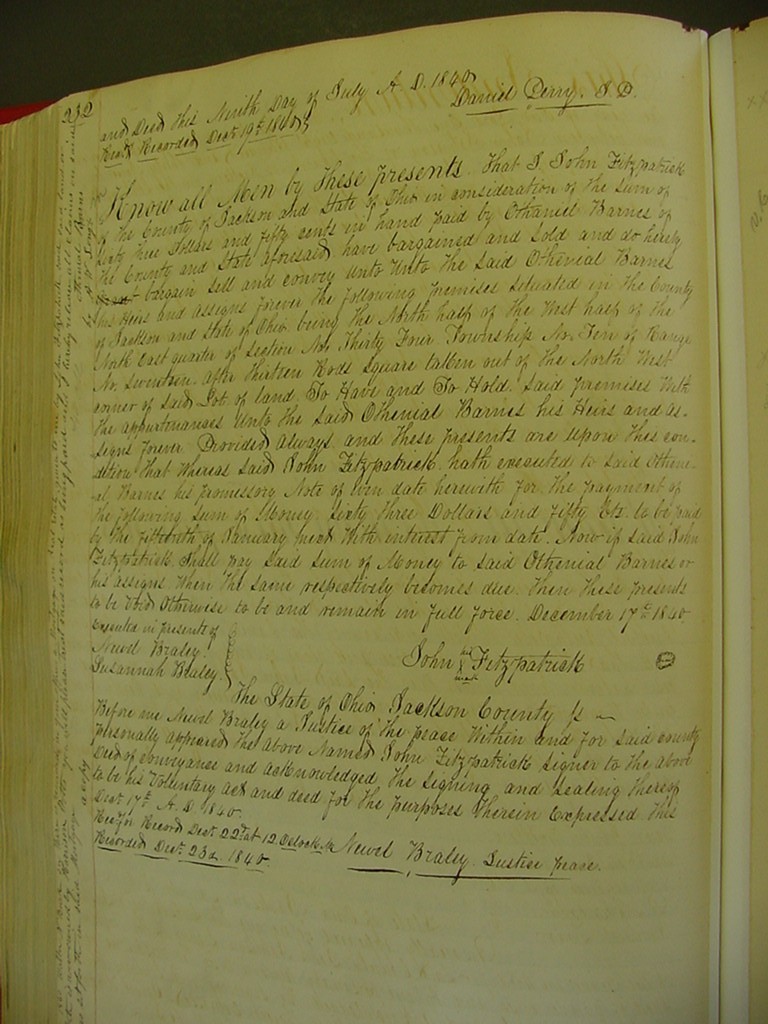 232
and Deed this Ninth Day of July A. D. 1840
Daniel Perry. J. P.
Recorded Dect. 19th 1840
Know all Men by These presents. That I John Fitzpatrick
of the County of Jackson and State of Ohio in consideration of the sum of
Sixty three Dollars and fifty cents in hand paid by Othaniel Barnes of
the County and State aforesaid have bargained and Sold and do hereby
bargain Sell and convey Unto Unto the said Othenial Barnes
his Heirs and assigns forever the following premises Situated in the County
of Jackson and State of Ohio being the North half of the West half of the
North East quarter of Section No. Thirty Four Township No. Ten of Range
No. Seventeen after Thirteen Rods Square taken out of the North West
corner of Said Lot of land To Have and To Hold Said premises With
the appurtinances Unto the Said Othenial Barnes his Heirs and as-
signs forever Provided always and these presents are upon this con-
dition That Whereas Said John Fitzpatrick hath executed to Said Otheni-
al Barnes his promissory Note of even date herewith for the payment of
the following Sum of Money. Sixty three Dollars and fifty Cts. to be paid
by the fifteenth of January next With interest from date. Now if said John
Fitzpatrick Shall pay Said Sum of Money to Said Othenial Barnes or
his assigns When the Same respectively becomes due. Then these presents
to be Void Otherwise to be and remain in full force. December 17th 1840
Executed in presents of
Newel Braley.
Susannah Braley.
John his X mark Fitzpatrick
The State of Ohio Jackson County Ss
Before me Newel Braley a Justice of the peace Within and for Said county
personally appeared the above Named John Fitzpatrick Signer to the above
Deed of conveyance and acknowledged the Signing and Sealing thereof
to be his Voluntary Act and deed for the purposes Therein Expressed this
Dect. 17th A. D. 1840.
Newel Braley. Justice peace.
Rec for Record Dect. 22d at 12 Oclock M
Recorded Dect. 23d. 1840.